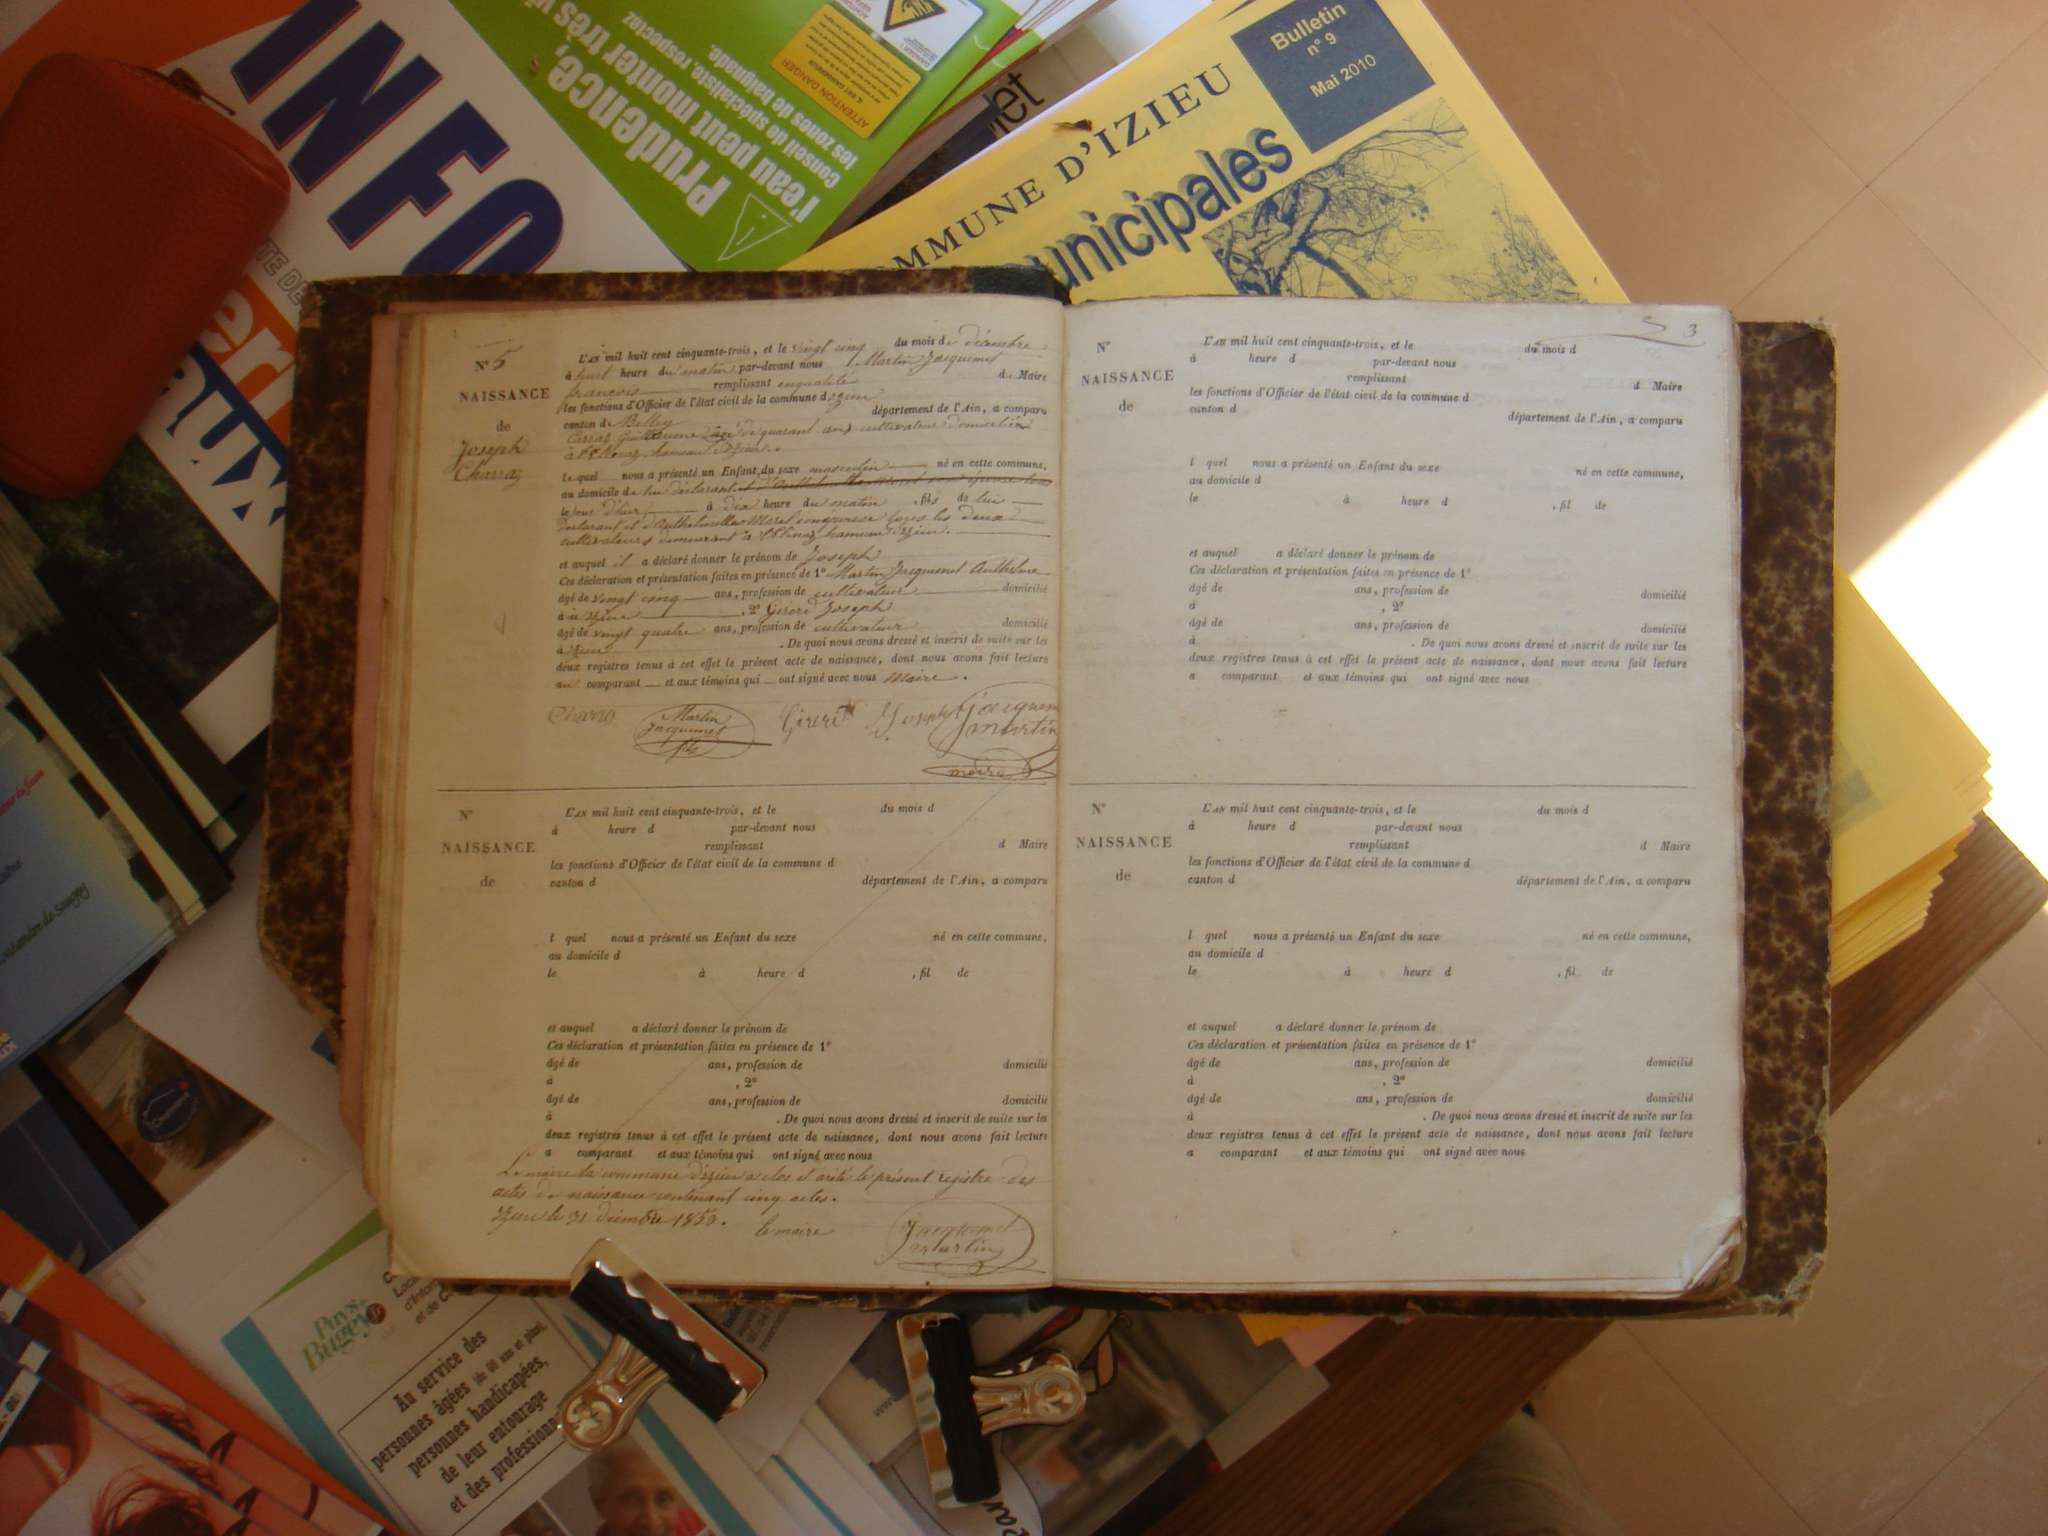 INFO
Prudence,
l'eau peut monter très vi
Conseil de spécialiste, respectez
les zones de baignade.
ATTENTION DANGER
Bulletin
n° 9
Mai 2010
OMMUNE D'IZIEU
unicipales
N° 5
NAISSANCE
de
Joseph
Charraz
L'AN mil huit cent cinquante-trois, et le vingt cinq du mois de décembre
à huit heures du matin par-devant nous Martin Jacquemet
françois remplissant en qualité de Maire
les fonctions d'Officier de l'état civil de la commune d'Izieu
canton de Belley département de l'Ain, a comparu
Guillaume agé de quarant ans cultivateur domicilié
hameau d'Izieu.
lequel nous a présenté un Enfant du sexe masculin né en cette commune,
au domicile de lui déclarant
le jour d'hier à dix heure du matin, fils de lui
déclarant et d' Morel son épouse tous les deux
cultivateurs demeurant à hameau d'Izieu.
et auquel il a déclaré donner le prénom de Joseph
Ces déclaration et présentation faites en présence de 1° Martin Jacquemet Anthelme
âgé de vingt cinq ans, profession de cultivateur domicilié
à Izieu, 2° Gireré Joseph
âgé de vingt quatre ans, profession de cultivateur domicilié
à Izieu. De quoi nous avons dressé et inscrit de suite sur les
deux registres tenus à cet effet le présent acte de naissance, dont nous avons fait lecture
au comparant et aux témoins qui ont signé avec nous Maire.
Martin
Jacquemet
fils
Gireré Joseph
Jacquemet
martin
maire
N°
NAISSANCE
de
L'AN mil huit cent cinquante-trois, et le du mois d
à heure d par-devant nous
remplissant d Maire
les fonctions d'Officier de l'état civil de la commune d
canton d département de l'Ain, a comparu
l quel nous a présenté un Enfant du sexe né en cette commune,
au domicile d
le à heure d , fil de
et auquel a déclaré donner le prénom de
Ces déclaration et présentation faites en présence de 1°
âgé de ans, profession de domicilié
à , 2°
âgé de ans, profession de domicilié
à . De quoi nous avons dressé et inscrit de suite sur les
deux registres tenus à cet effet le présent acte de naissance, dont nous avons fait lecture
a comparant et aux témoins qui ont signé avec nous
Le maire la commune d'Izieu a clos et arêté le présent registre des
actes de naissance contenant cinq actes.
Izieu le 31 décembre 1853. le maire
Jacquemet
martin
3
N°
NAISSANCE
de
L'AN mil huit cent cinquante-trois, et le du mois d
à heure d par-devant nous
remplissant d Maire
les fonctions d'Officier de l'état civil de la commune d
canton d département de l'Ain, a comparu
l quel nous a présenté un Enfant du sexe né en cette commune,
au domicile d
le à heure d , fil de
et auquel a déclaré donner le prénom de
Ces déclaration et présentation faites en présence de 1°
âgé de ans, profession de domicilié
à , 2°
âgé de ans, profession de domicilié
à . De quoi nous avons dressé et inscrit de suite sur les
deux registres tenus à cet effet le présent acte de naissance, dont nous avons fait lecture
a comparant et aux témoins qui ont signé avec nous
N°
NAISSANCE
de
L'AN mil huit cent cinquante-trois, et le du mois d
à heure d par-devant nous
remplissant d Maire
les fonctions d'Officier de l'état civil de la commune d
canton d département de l'Ain, a comparu
l quel nous a présenté un Enfant du sexe né en cette commune,
au domicile d
le à heure d , fil de
et auquel a déclaré donner le prénom de
Ces déclaration et présentation faites en présence de 1°
âgé de ans, profession de domicilié
à , 2°
âgé de ans, profession de domicilié
à . De quoi nous avons dressé et inscrit de suite sur les
deux registres tenus à cet effet le présent acte de naissance, dont nous avons fait lecture
a comparant et aux témoins qui ont signé avec nous
Pays
Bugey
Au service des
personnes âgées de 60 ans et plus,
personnes handicapées,
de leur entourage
et des professionn